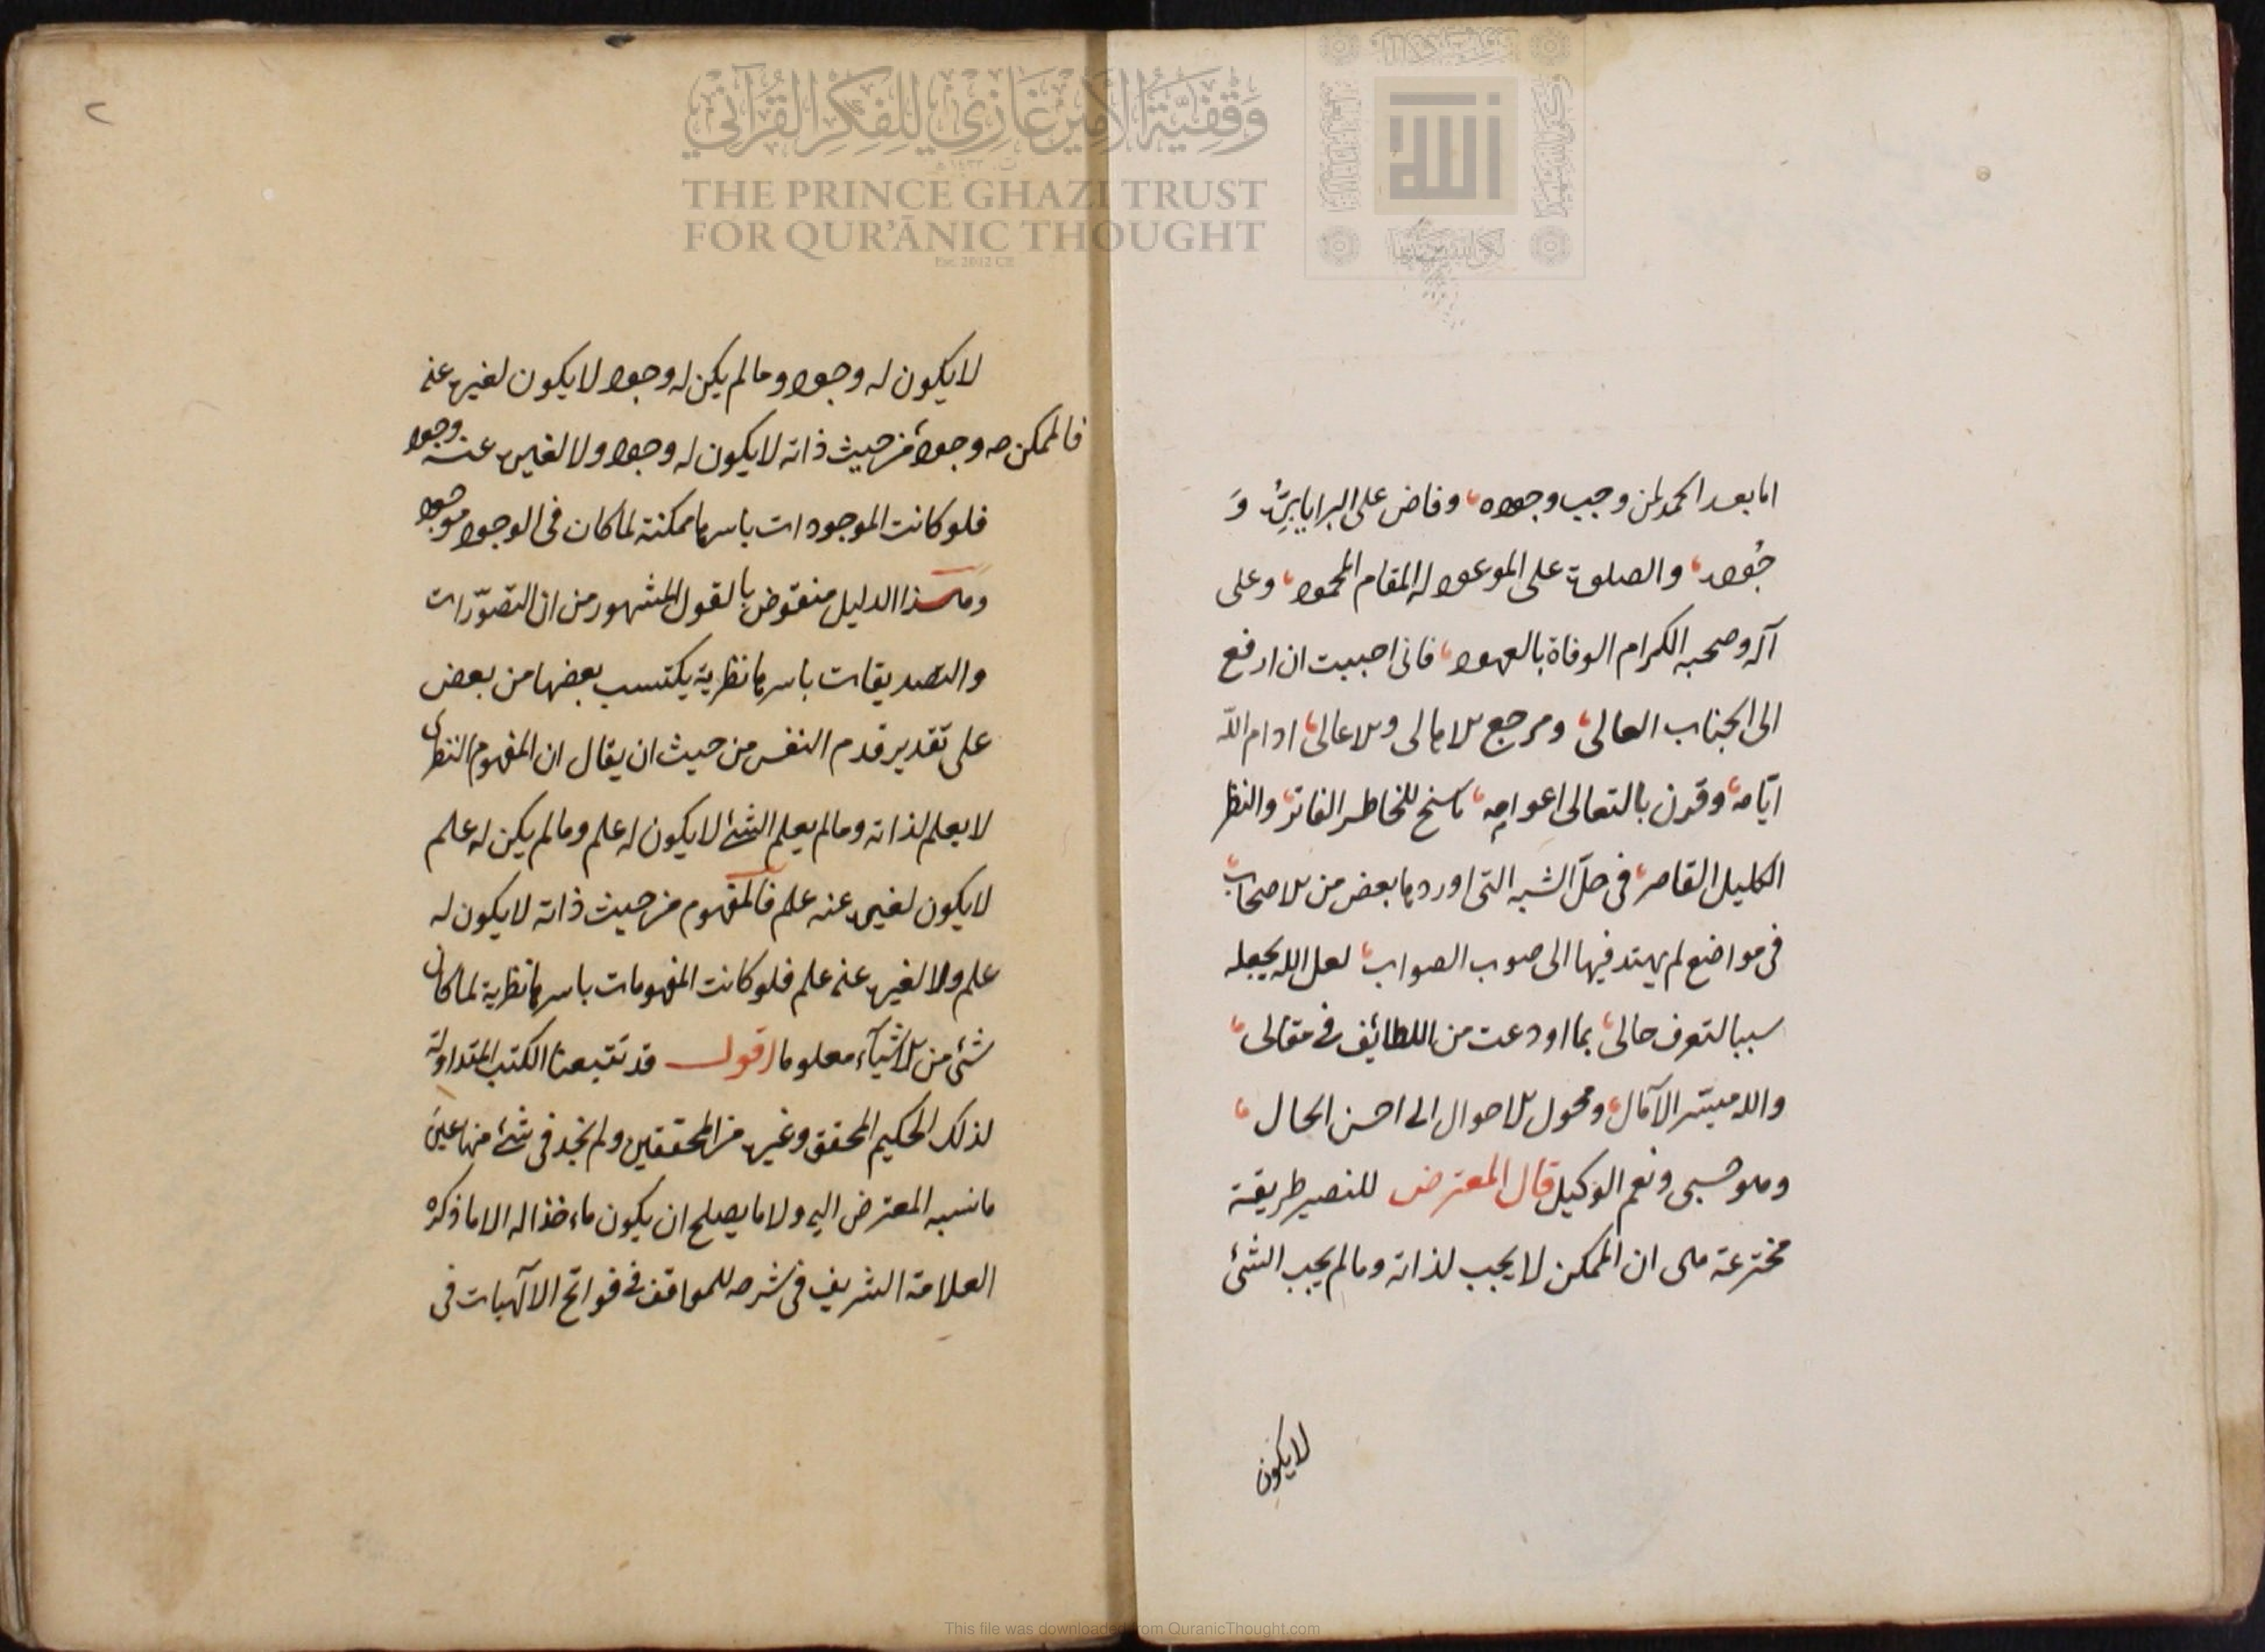 اما بعد الحمد لمن وجب وجوده، وفاض على البرايا بِرُّه وَ
جُوده، والصلوة على الموعود له المقام المحمود، وعلى
آله وصحبه الكرام الوفاة بالعهود، فانى احببت ان ارفع
الى الجناب العالى، ومرجع الاهالى والاعالى، ادام الله
ايّامه، وقرن بالتعالى اعوامه، ما سنح للخاطر الفاتر، والنظر
الكليل القاصر، فى حلّ الشبه التى اوردها بعض من الاصحاب،
فى مواضع لم يهتد فيها الى صوب الصواب، لعل الله يجعله
سببا لتعرف حالى، بما اودعت من اللطائف فى مقالى،
والله ميسّر الآمال، ومحول الاحوال الى احسن الحال،
وهو حسبى ونعم الوكيل قال المعترض للنصير طريقة
مخترعة هى ان الممكن لا يجب لذاته وما لم يجب الشئ
لا يكون
٢
لا يكون له وجود وما لم يكن له وجود لا يكون لغيره عنه
وجود
فالممكن من حيث ذاته لا يكون له وجود ولا لغيره عنه وجود
فلو كانت الموجودات باسرها ممكنة لما كان فى الوجود موجود
وهذا الدليل منقوض بالقول المشهور من ان التصوّرات
والتصديقات باسرها نظرية يكتسب بعضها من بعض
على تقدير قدم النفس من حيث ان يقال ان المفهوم النظرى
لا يعلم لذاته وما لم يعلم الشئ لا يكون له علم وما لم يكن له علم
لا يكون لغيره عنه علم فالمفهوم من حيث ذاته لا يكون له
علم ولا لغيره عنه علم فلو كانت المفهومات باسرها نظرية لما كان
شئ من الاشيآء معلوما اقول قد تتبعنا الكتب المتداولة
لذلك الحكيم المحقق وغيره من المحققين ولم نجد فى شئ منها عين
ما نسبه المعترض اليه ولا ما يصلح ان يكون ماءخذا له الا ما ذكره
العلامة الشريف فى شرحه للمواقف فى فواتح الآلهيات فى
وقفية الأمير غازي للفكر القرآني
THE PRINCE GHAZI TRUST
FOR QUR'ĀNIC THOUGHT
Est. 2012 CE
الله
This file was downloaded from QuranicThought.com